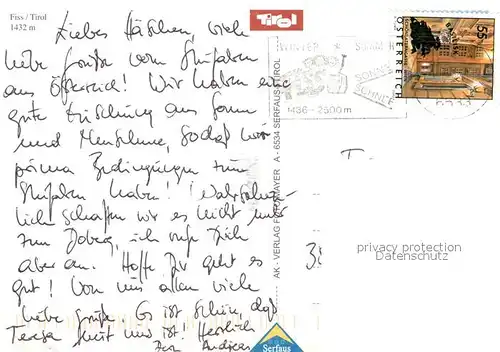 Fiss / Tirol
1432 m
Tirol
Liebes Häschen, viele
liebe Grüße vom Skifahren
aus Österreich! Wir haben eine
gute Mischung aus Sonne
und
prima Bedingungen zum
Skifahren haben! Wahrschein-
lich schaffen wir es nicht mehr
zum ich rufe Dich
aber an. Hoffe Dir geht es
gut! Von uns allen viele
liebe Grüße. Es ist schön, daß
Teresa mit uns ist! Herzlich
Andreas
WINTER * SOMMER
SONNE
SCHNEE
1436 - 2600 m
55
ÖSTERREICH
AK - VERLAG FOTO MAYER A - 6534 SERFAUS - TIROL
T
privacy protection
Datenschutz
Serfaus